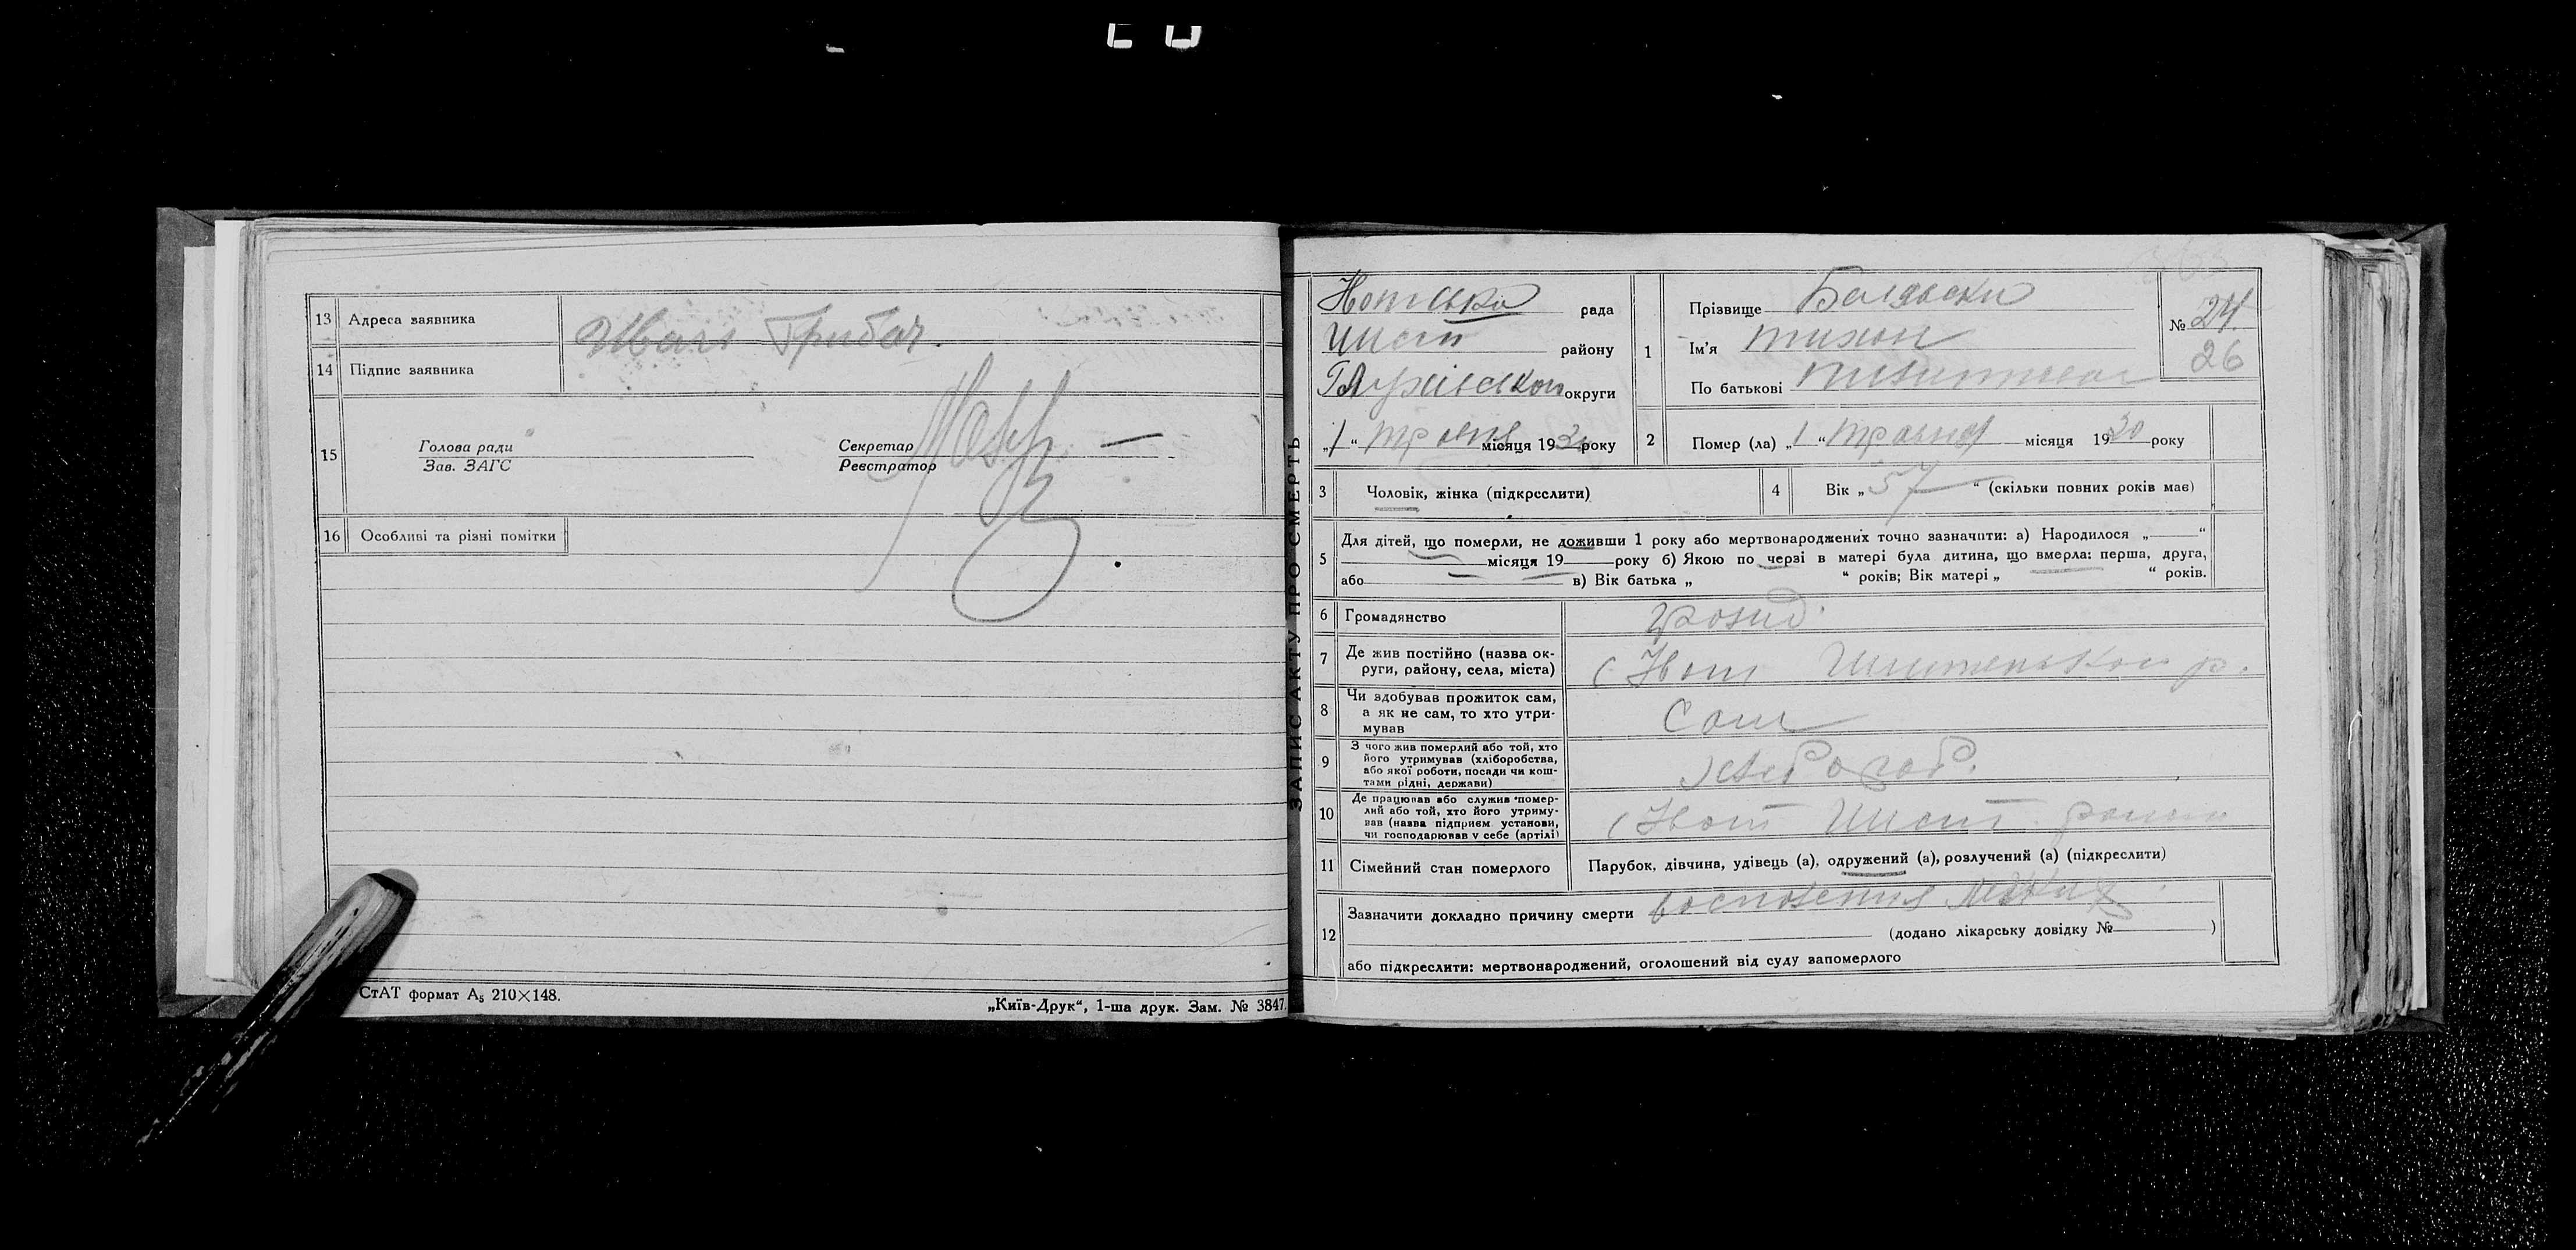 13 Адреса заявника
Иван Грибач.
14 Підпис заявника
15 Голова ради
Зав. ЗАГС
Секретар
Реєстратор
16 Особливі та різні помітки
СтАТ формат А₅ 210×148.
„Київ-Друк“, 1-ша друк. Зам. № 3847.
ЗАПИС АКТУ ПРО СМЕРТЬ
рада
Шост району
Глухівської округи
„1“ травня місяця 1930 року
1 Прізвище
Ім’я Тихон
По батькові
№ 24.
26
2 Помер (ла) „1“ травня місяця 1930 року
3 Чоловік, жінка (підкреслити)
4 Вік „57“ (скільки повних років має)
5 Для дітей, що померли, не доживши 1 року або мертвонароджених точно зазначити: а) Народилося „ “
місяця 19 року б) Якою по черзі в матері була дитина, що вмерла: перша, друга,
або в) Вік батька „ “ років; Вік матері „ “ років.
6 Громадянство
7 Де жив постійно (назва ок-
руги, району, села, міста)
8 Чи здобував прожиток сам,
а як не сам, то хто утри-
мував
Сам
9 З чого жив померлий або той, хто
його утримував (хліборобства,
або якої роботи, посади чи кош-
тами рідні, держави)
хлебороб.
10 Де працював або служив помер-
лий або той, хто його утриму-
вав (назва підприєм установи,
чи господарював у себе (артілі)
11 Сімейний стан померлого
Парубок, дівчина, удівець (а), одружений (а), розлучений (а) (підкреслити)
12 Зазначити докладно причину смерти воспаления легких
(додано лікарську довідку № )
або підкреслити: мертвонароджений, оголошений від суду запомерлого